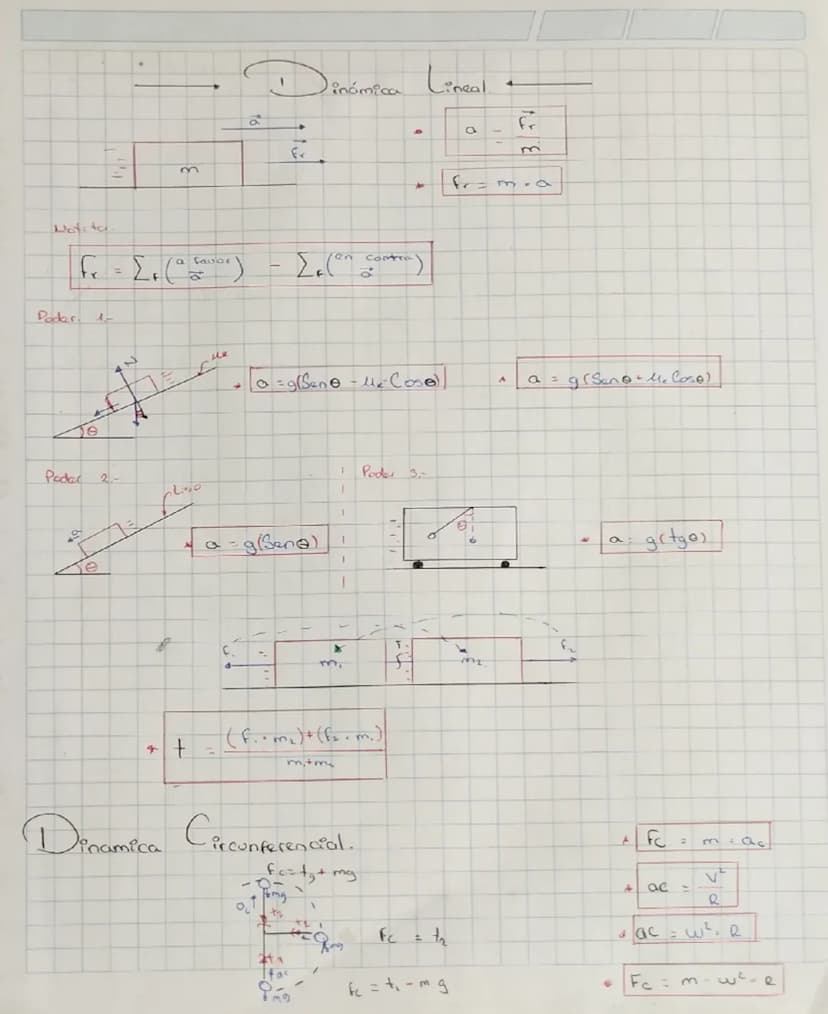 Dinámica Lineal
a⃗
m
F⃗r
a = F⃗r / m
Fr = m · a
Fr = Σf (a favor a⃗) - Σf (en contra a⃗)
Poder 1.-
N
μk
θ
a = g(Senθ - μk·Cosθ)
a = g(Senθ + μk Cosθ)
Poder 2.-
Liso
a
θ
a = g(Senθ)
Poder 3.-
θ
a = g(tgθ)
F1
m1
T
m2
F2
t = (F1 · m2) + (F2 · m1) / m1+m2
Dinamica Circunferencial.
Fc = t3 + mg
mg
ac
t3
t2
mg
Fc = t2
t1
ac
mg
Fc = t1 - mg
Fc = m · ac
ac = V² / R
ac = w² · R
Fc = m · w² · R